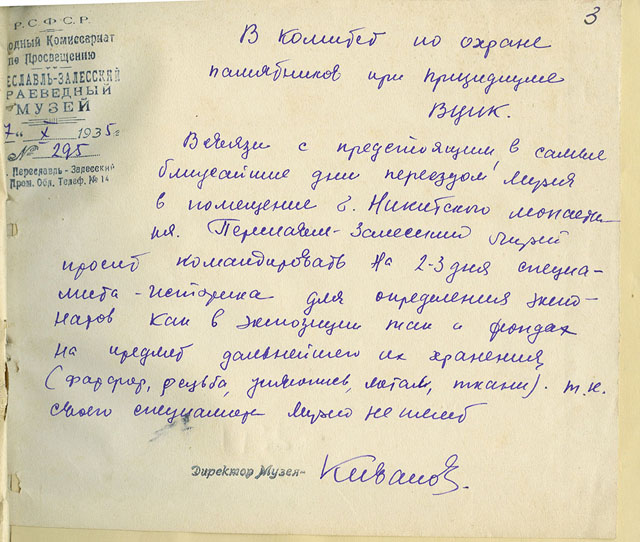 3
Р.С.Ф.С.Р.
одный Комиссариат
по Просвещению
еславль-Залесский
раеведный
МУЗЕЙ
7„ X 1935г
№ 295
Переславль-Залесский
Пром. Обл. Телеф. № 14
В Комитет по охране
памятников при Призидиуме
ВЦИК.
В связи с предстоящим, в самые
ближайшие дни переездом Музея
в помещение б. Никитского монасты-
ря. Переславл-Залесский Музей
просит командировать на 2-3 дня специа-
листа-историка для определения экспо-
натов как в экспозиции так и фондах
на предмет дальнейшего их хранения
(фарфор, резьба, живопись, металл, ткани). т.к.
своего специалиста Музей не имеет
Директор Музея-